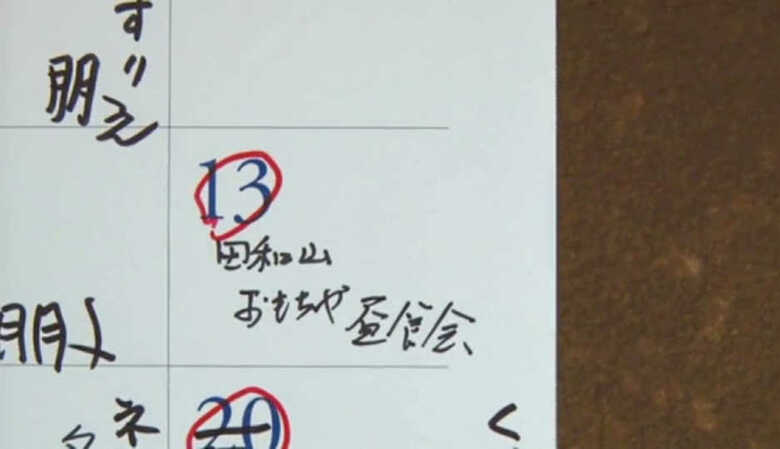 すりえ
朋
13
田和山
おもちゃ 昼食会
朋
ネ
20
く